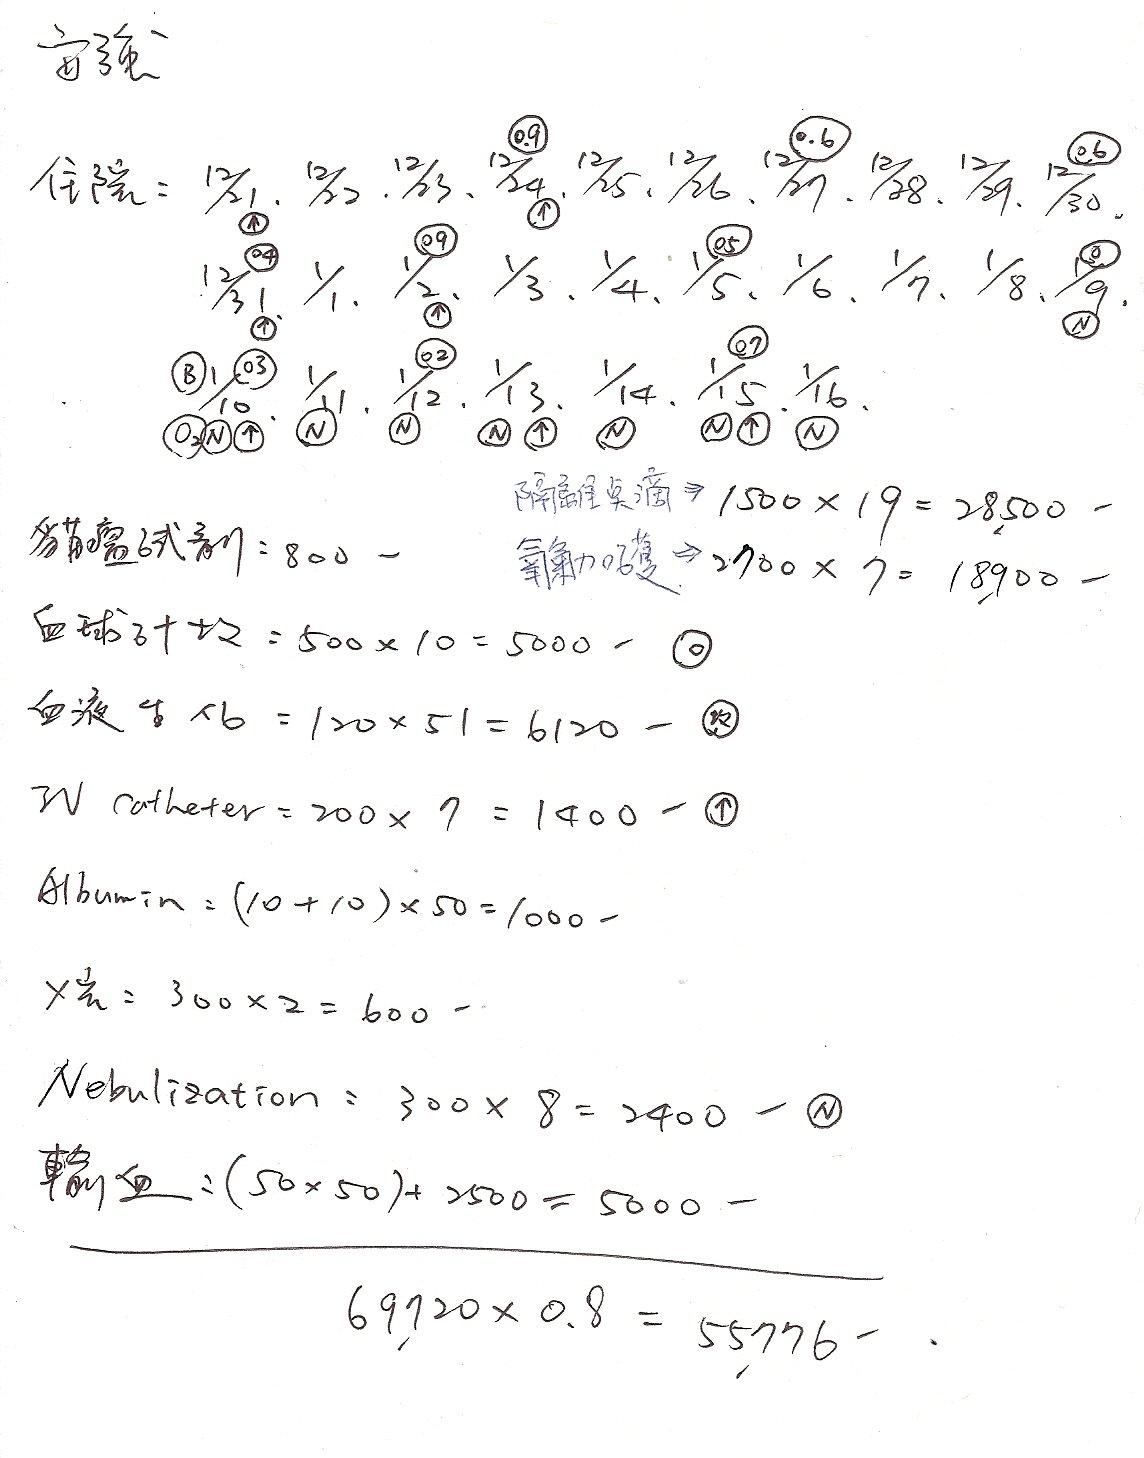 安強
住院: 12/21. 12/22. 12/23. 12/24. 12/25. 12/26. 12/27. 12/28. 12/29. 12/30.
12/31. 1/1. 1/2. 1/3. 1/4. 1/5. 1/6. 1/7. 1/8. 1/9.
1/10. 1/11. 1/12. 1/13. 1/14. 1/15. 1/16.
隔離點滴 ⇒ 1500 × 19 = 28,500 -
貓瘟試劑: 800 -
氧氣加護 ⇒ 2700 × 7 = 18,900 -
血球計數: 500 × 10 = 5000 - ○
血液生化 = 120 × 51 = 6120 -
IV catheter = 200 × 7 = 1400 - ↑
Albumin: (10 + 10) × 50 = 1000 -
X光: 300 × 2 = 600 -
Nebulization: 300 × 8 = 2400 - N
輸血: (50 × 50) + 2500 = 5000 -
69,720 × 0.8 = 55,776 -